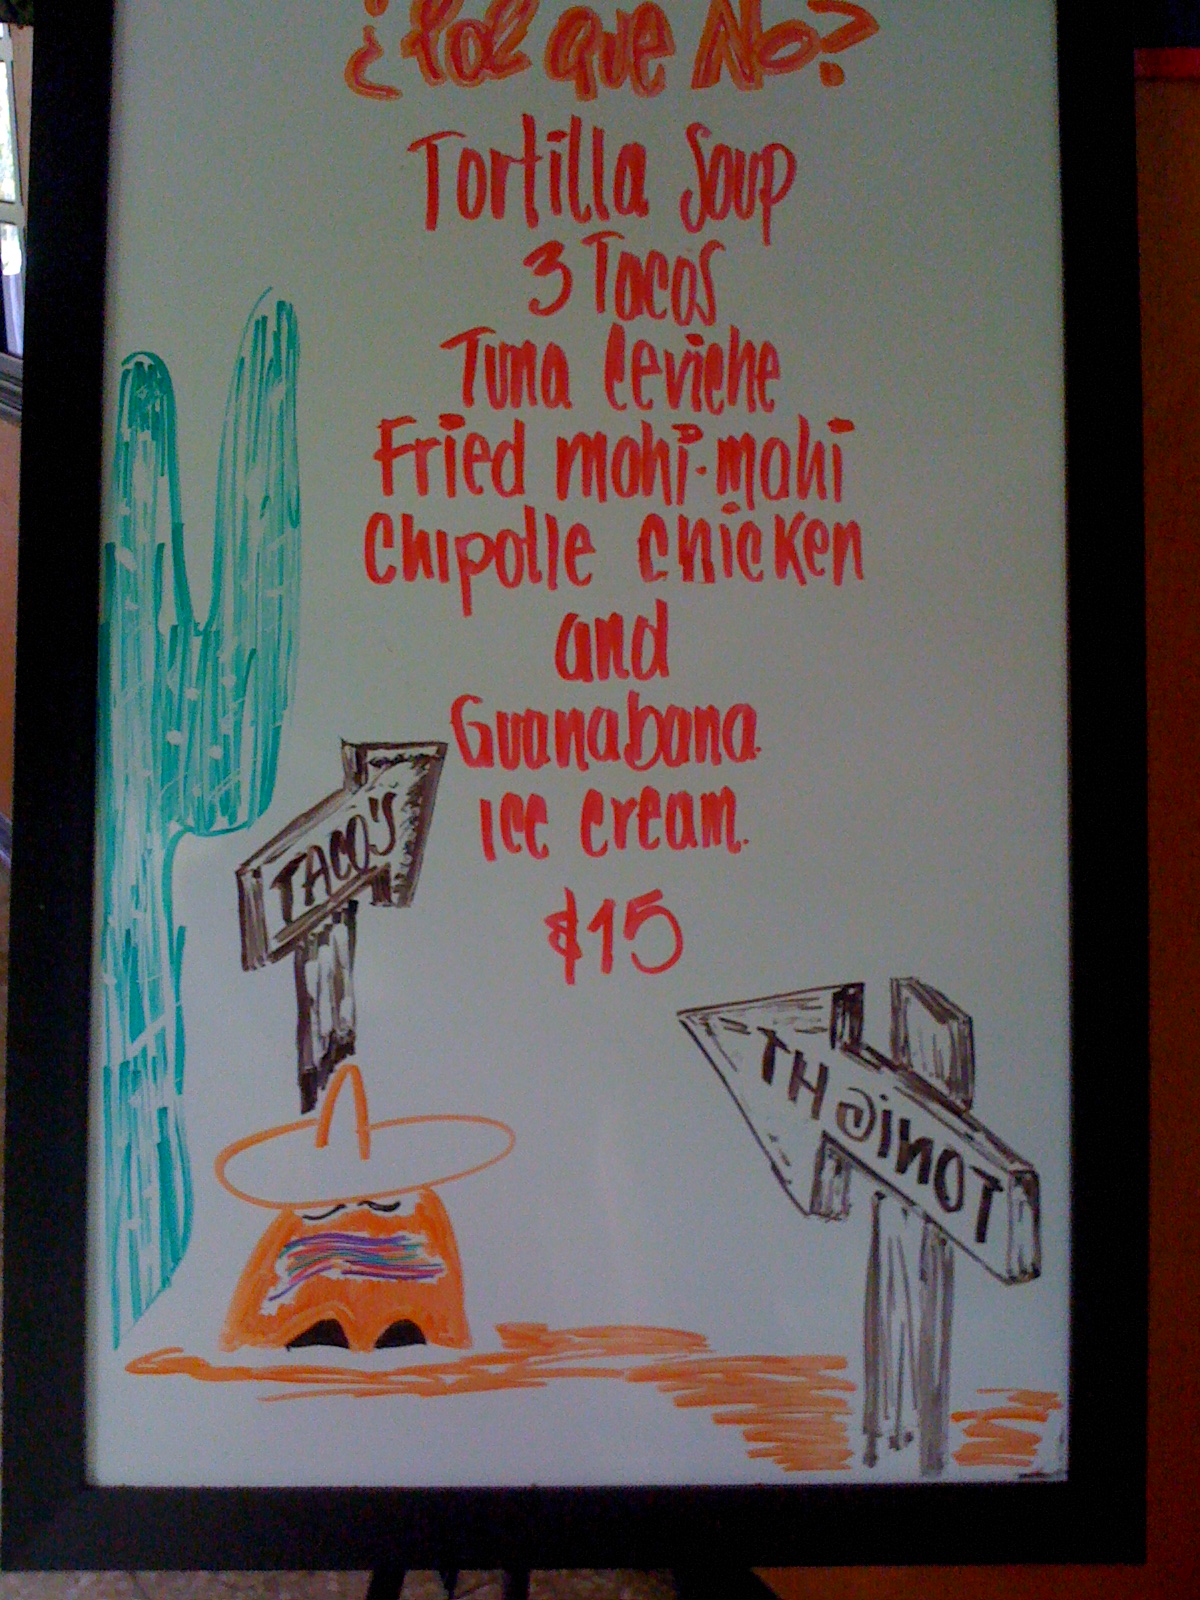 ¿Por que No?
Tortilla Soup
3 Tacos
Tuna Ceviche
Fried mahi-mahi
Chipotle chicken
and
Guanabana
ice cream.
$15
TACO'S
TONIGHT